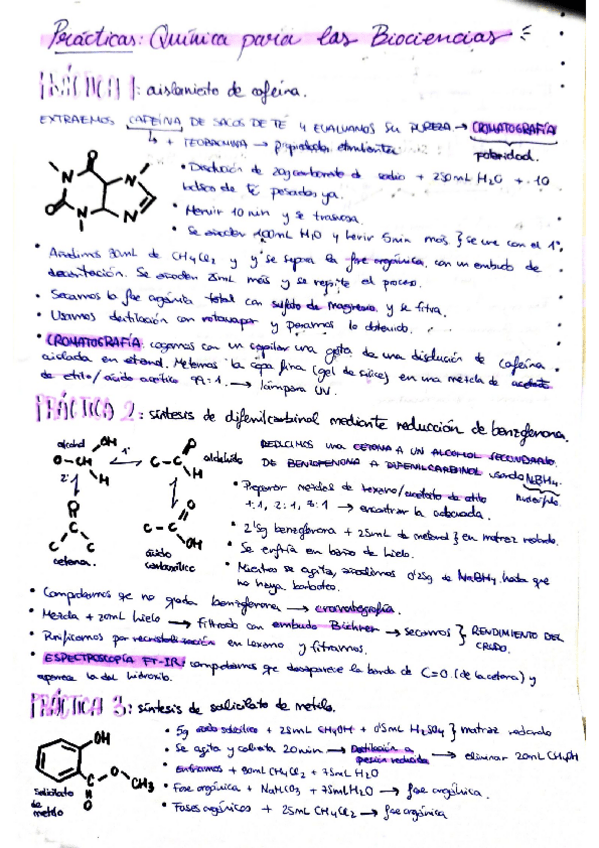 Prácticas: Química para las Biociencias
PRÁCTICA 1: aislamiento de cafeína.
EXTRAEMOS CAFEÍNA DE SACOS DE TÉ Y EVALUAMOS SU PUREZA → CROMATOGRAFÍA
↳ + TEOBROMINA → propiedades estimulantes
polaridad.
• Disolución de 20g carbonato de sodio + 250mL H2O + 10
bolsas de té pesadas ya.
• Hervir 10 min y se trasvasa.
• Se añaden 100mL H2O y hervir 5min más } se une con el 1º.
• Añadimos 30mL de CH2Cl2 y se separa la fase orgánica con un embudo de
decantación. Se añaden 25mL más y se repite el proceso.
• Secamos la fase orgánica total con sulfato de magnesio y se filtra.
• Usamos destilación con rotavapor y pesamos lo obtenido.
• CROMATOGRAFÍA: cogemos con un capilar una gota de una disolución de cafeína
aislada en etanol. Metemos la capa fina (gel de sílice) en una mezcla de acetato
de etilo/ácido acético 99:1. → lámpara UV.
PRÁCTICA 2: síntesis de difenilcarbinol mediante reducción de benzofenona.
alcohol
OH
O-CH
H
1º
C-C
O
H
aldehído
2º
O
C
C C
cetona.
C-C
O
OH
ácido
carboxílico
REDUCIMOS una CETONA A UN ALCOHOL SECUNDARIO.
DE BENZOFENONA A DIFENILCARBINOL usando NaBH4.
nucleófilo
• Preparar mezclas de hexano/acetato de etilo
1:1, 2:1, 3:1 → encontrar la adecuada.
• 2'5g benzofenona + 25mL de metanol } en matraz redondo.
• Se enfría en baño de hielo.
• Mientras se agita, añadimos 0'25g de NaBH4 hasta que
no haya borboteo.
• Comprobamos que no queda benzofenona → cromatografía.
• Mezcla + 20mL hielo → Filtrado con embudo Büchner → secamos } RENDIMIENTO DEL
CRUDO.
• Purificamos por recristalización en hexano y filtramos.
• ESPECTROSCOPÍA FT-IR: comprobamos que desaparece la banda de C=O (de la cetona) y
aparece la del hidroxilo.
PRÁCTICA 3: síntesis de salicilato de metilo.
OH
C O CH3
O
salicilato
de
metilo
• 5g ácido salicílico + 25mL CH3OH + 0'5mL H2SO4 } matraz redondo
• Se agita y calienta 20min → Destilación a
presión reducida → eliminar 20mL CH3OH
• enfriamos + 90mL CH2Cl2 + 75mL H2O
• Fase orgánica + NaHCO3 + 75mL H2O → fase orgánica.
• Fases orgánicas + 25mL CH2Cl2 → fase orgánica